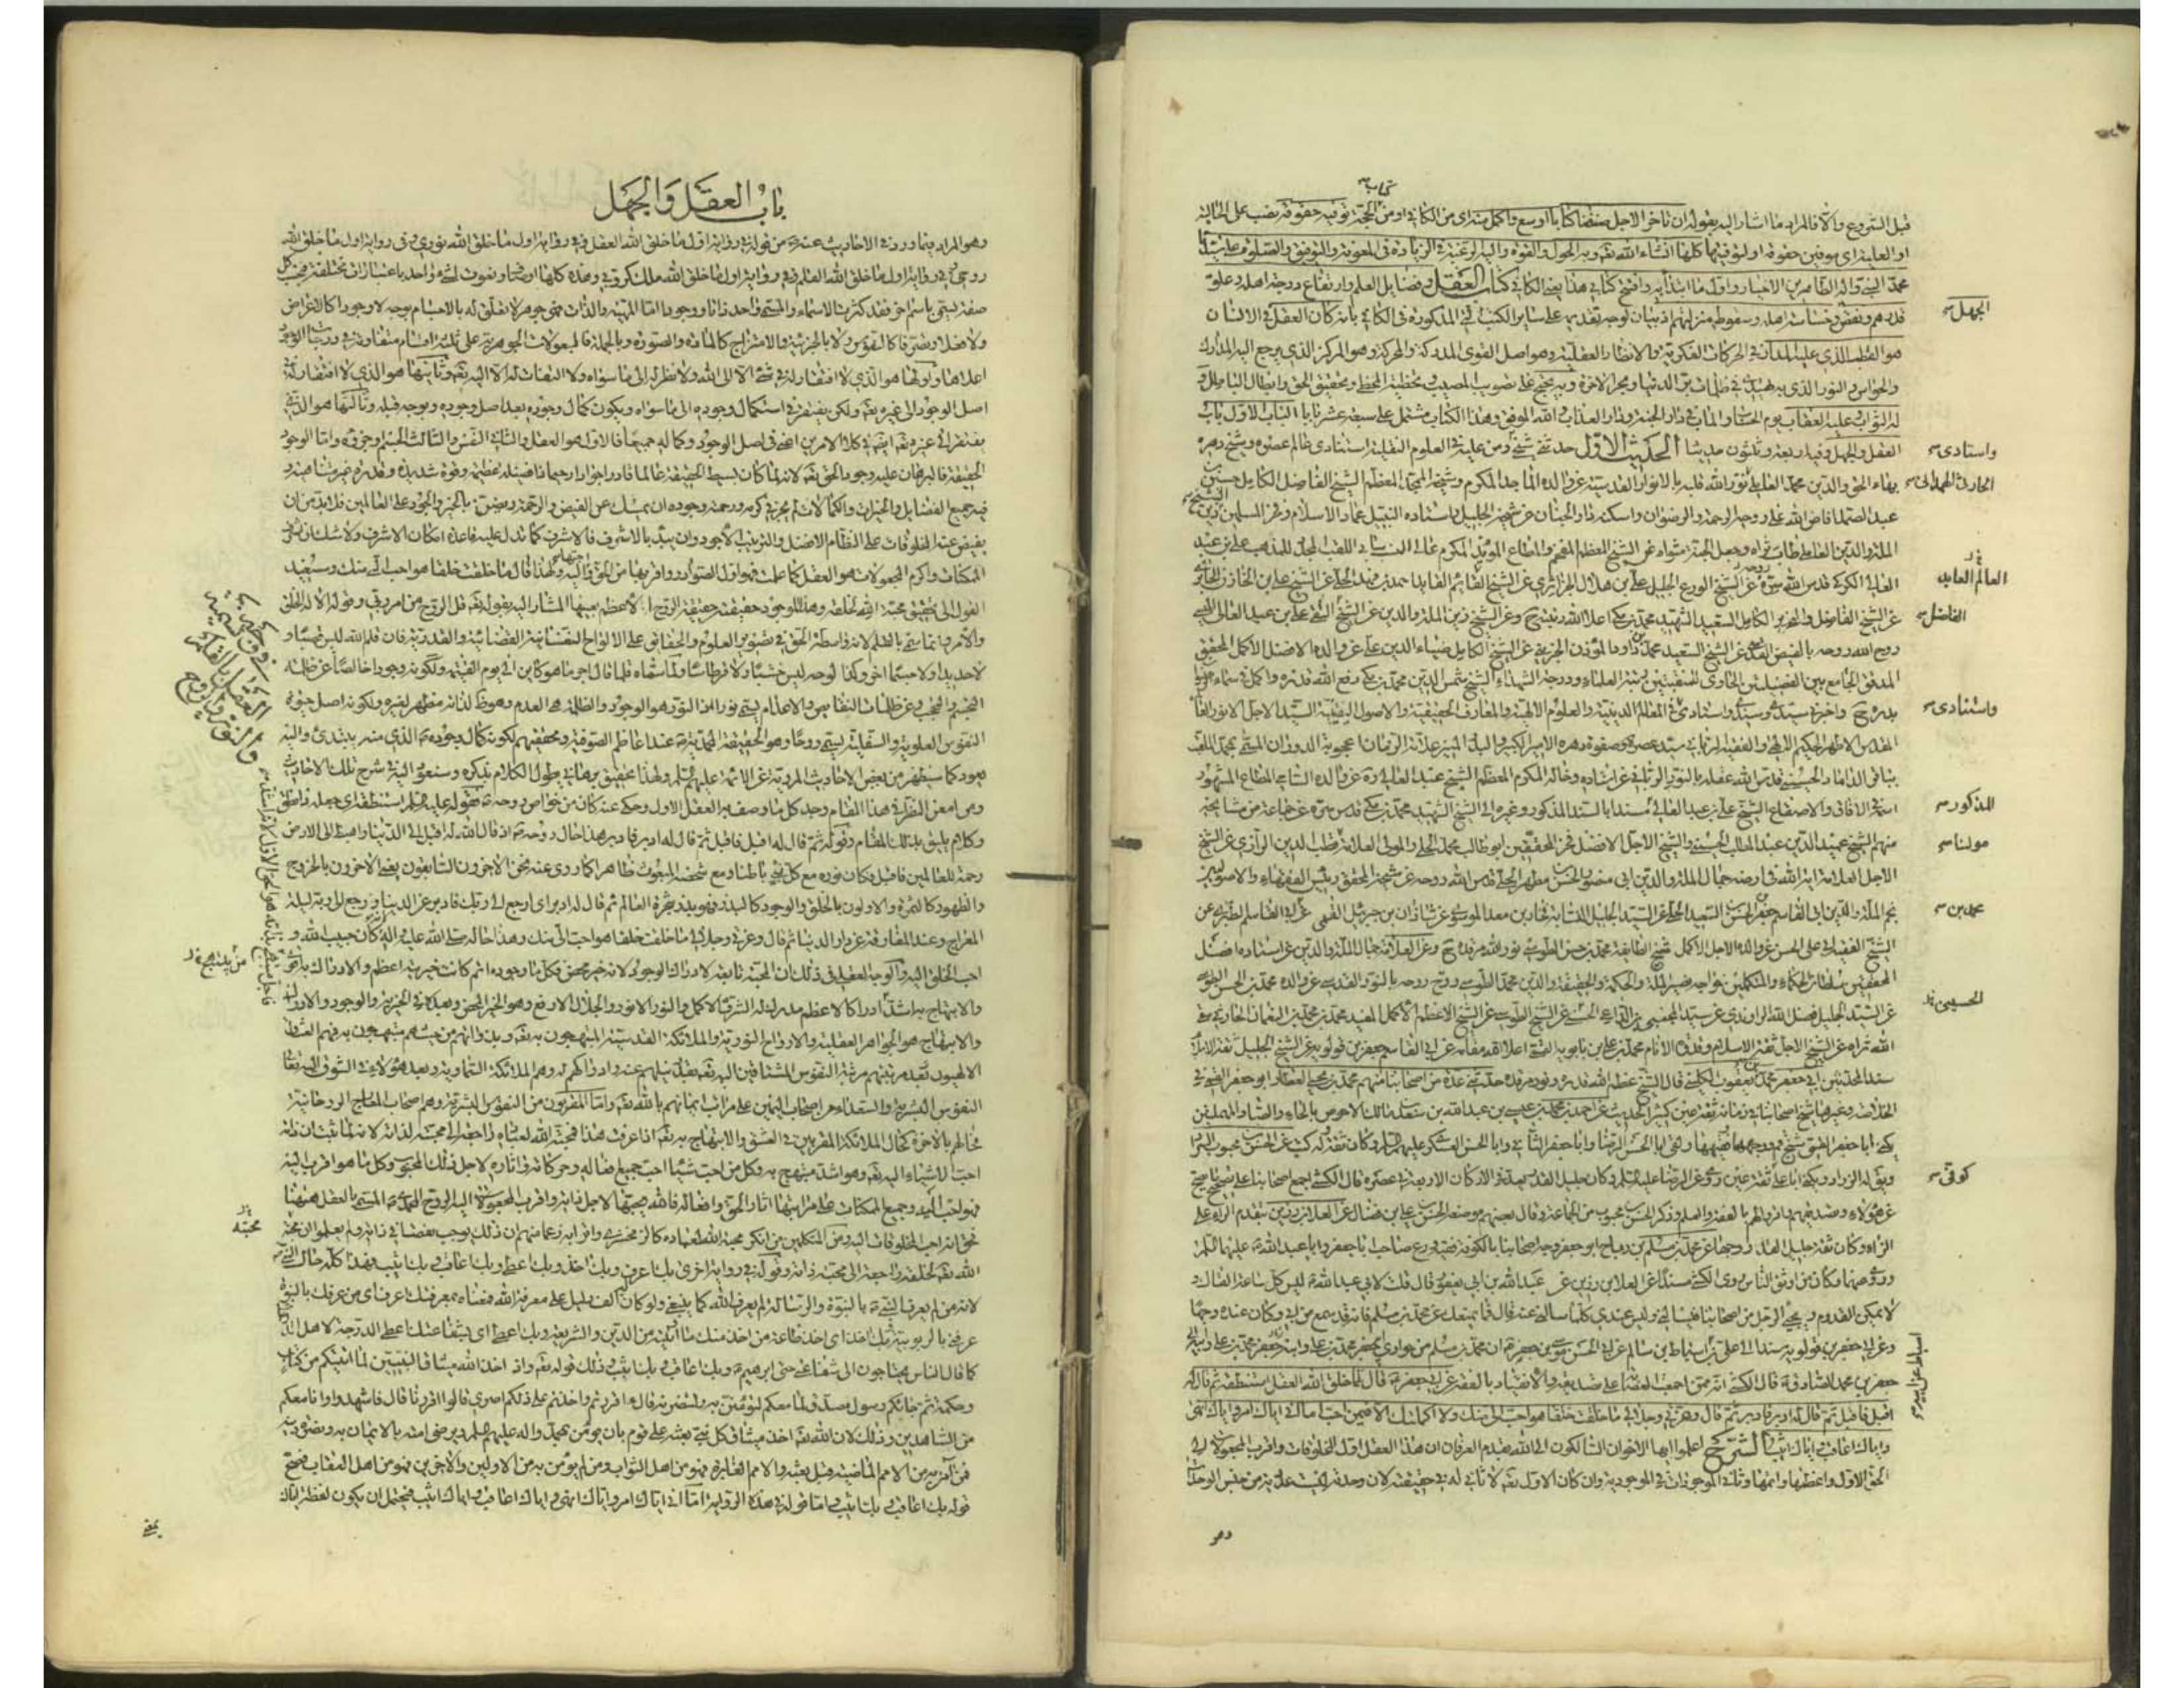 كتاب
قبل الشروع والا فالمراد ما اشار اليه بقوله ان تاخر الاجل صنفنا كتابا اوسع واكمل منه اى من الكافى او من الحجة نوفيه حقوقه نصب على الحالية
او الغاية اى موفين حقوقه او لنوفيها كلها انشاء الله تعه وبه الحول والقوة واليه الرغبة فى الزيادة فى المعونة والتوفيق والصلوة على سيدنا
محمد النبى واله الطاهرين الاخيار واول ما ابتدأ به وافتتح كتابى هذا يعنى الكافى كتاب العقل وفضايل العلم وارتفاع درجة اهله وعلو
قدرهم ونقص وخساسة اهله وسقوط منزلتهم اذ بيان لوجه تقديمه على ساير الكتب المذكورة فى الكافى بانه كان العقل فى الانسان
الجهل
هو القطب الذى عليه المدار فى الحركات الفكرية والانظار العقلية وهو اصل القوى المدركة والمحركة وهو المركز الذى يرجع اليه المدارك
والحواس والنور الذى به يهتدى فى ظلمات بر الدنيا وبحر الاخرة وبه يحتج على تصويب المصيب وتخطئة المخطى وتحقيق الحق وابطال الباطل و
له الثواب وعليه العقاب يوم الحساب والماب فى دار الجنة ودار العذاب والله الموفق وهذا الكتاب مشتمل على سبعة عشر بابا الباب الاول باب
العقل والجهل وفيه اربعة وثلثون حديثا الحديث الاول حدثنى شيخى ومن عليه فى العلوم النقلية استنادى عالم عصره وشيخ دهره
واستادى
بهاء الحق والدين محمد العاملى نور الله قلبه بالانوار القدسية عن والده الماجد المكرم وشيخه الممجد المعظم الشيخ الفاضل الكامل حسين بن
الحارثى الهمدانى
عبد الصمد افاض الله على روحه الرحمة والرضوان واسكنه دار الجنان عن شيخه الجليل واستاده النبيل عماد الاسلام وفخر المسلمين زين
الملة والدين العاملى طاب ثراه وجعل الجنة مثواه عن الشيخ المعظم المفخم والمطاع المؤيد المكرم عالى النسب سامى اللقب المجدد للمذهب على بن عبد
العالى الكركى قدس الله سره عن الشيخ الورع الجليل على بن هلال الجزائرى عن الشيخ العابد احمد بن فهد الحلى عن الشيخ على بن الخازن الحائرى
العالم العابد
عن الشيخ الفاضل والنحرير الكامل السعيد الشهيد محمد بن مكى اعلا الله رتبته ح وعن الشيخ زين الملة والدين عن الشيخ على بن عبد العالى الميسى
الفاضل
روح الله روحه بالفيض القدسى عن الشيخ السعيد محمد بن داود المؤذن الجزينى عن الشيخ الكامل ضياء الدين على عن والده الافضل الاكمل المحقق
المدقق الجامع بين الفضيلتين الحاوى للمنقبتين رتبة العلماء ودرجة الشهداء الشيخ شمس الدين محمد بن مكى رفع الله قدره
بدره ح واخبرنى سيدى وسندى واستادى فى المعالم الدينية والعلوم الالهية والمعارف الحقيقية والاصول اليقينية السيد الاجل الانور
واستنادى
المقدس الاطهر الحكيم الالهى والفقيه الربانى سيد عصره وصفوة دهره الامير الكبير والبدر المنير علامة الزمان اعجوبة الدوران المسمى بمحمد الملقب
بباقر الداماد الحسينى قدس الله عقله بالنور الربانى عن استاده وخاله المكرم المعظم الشيخ عبد العالى ره عن والده المطاع المشهور
اسمه فى الافاق والاصقاع الشيخ على بن عبد العالى مسندا بالسند المذكور وغيره الى الشيخ الشهيد محمد بن مكى قدس سره عن جماعة من مشايخه
المذكور
منهم الشيخ عميد الدين عبد المطلب الحسينى والشيخ الاجل الافضل فخر المحققين ابو طالب محمد الحلى والمولى العلامة قطب الدين الرازى عن الشيخ
مولنا
الاجل العلامة اية الله فى ارضه جمال الملة والدين ابى منصور الحسن بن مطهر الحلى قدس الله روحه عن شيخه المحقق رئيس الفقهاء والاصوليين
نجم الملة والدين ابى القاسم جعفر بن الحسن السعيد الحلى عن السيد الجليل النسابة فخار بن معد الموسوى عن شاذان بن جبرئيل القمى عن ابى القاسم الطبرى عن
محمد بن
الشيخ الفقيه ابى على الحسن عن والده الاجل الاكمل شيخ الطايفة محمد بن حسن الطوسى نور الله مرقده ح وعن العلامة جمال الملة والدين عن استاده افضل
المحققين سلطان الحكماء والمتكلمين خواجه نصير الملة والحكمة والحقيقة والدين محمد الطوسى روح روحه بالنور القدسى عن والده محمد بن الحسن الطوسى
عن السيد الجليل فضل الله الراوندى عن سيد المجتبى بن الداعى الحسنى عن الشيخ الطوسى عن الشيخ الاعظم الاكمل المفيد محمد بن محمد بن النعمان الحارثى سقى
الحسينى
الله ثراه عن الشيخ الاجل ثقة الاسلام وقدوة الانام محمد بن على بن بابويه القمى اعلا الله مقامه عن ابى القاسم جعفر بن قولويه عن الشيخ الجليل ثقة الاسلام
سند المحدثين ابى جعفر محمد بن يعقوب الكلينى قال الشيخ عظم الله قدره ونور مرقده حدثنى عدة من اصحابنا منهم محمد بن يحيى العطار ابو جعفر القمى
شيخ اصحابنا فى زمانه ثقة عين كثير الحديث عن احمد بن محمد بن عيسى بن عبد الله بن سعد بن مالك الاحوص بالحاء والصاد المهملتين
يكنى ابا جعفر القمى شيخ قم ووجهها وفقيهها ولقى ابا الحسن الرضا وابا جعفر الثانى وابا الحسن العسكرى عليهم السلم وكان ثقة له كتب عن الحسن بن محبوب السراد
ويق له الزراد ويكنى ابا على ثقة عين روى عن الرضا عليه السلم وكان جليل القدر يعد فى الاركان الاربعة فى عصره قال الكشى اجمع اصحابنا على تصحيح ما يصح
كوفى
عن هؤلاء وتصديقهم واقروا لهم بالفقه والعلم وذكر الحسن بن محبوب من الجماعة وقال بعضهم موضعه الحسن بن على بن فضال عن العلا بن رزين بتقديم الراء على
الزاء وكان ثقة جليل القدر وجها عن محمد بن مسلم بن رباح ابو جعفر وجه اصحابنا بالكوفة فقيه ورع صاحب ابا جعفر وابا عبد الله عليهما السلم
وروى عنهما وكان من اوثق الناس روى الكشى مسندا عن العلا بن رزين عن عبد الله بن ابى يعفور قال قلت لابى عبد الله ع ليس كل ساعة القاك و
لا يمكن القدوم ويجئ الرجل من اصحابنا فيسألنى وليس عندى كلما سألنى عنه قال فما يمنعك عن محمد بن مسلم فانه قد سمع من ابى وكان عنده وجيها
جعفر بن محمد الصادق ع قال الكشى انه ممن اجمعت العصابة على تصديقه والانقياد بالفقه عن ابى جعفر ع قال لما خلق الله العقل استنطقه ثم قال له
اقبل فاقبل ثم قال له ادبر فادبر ثم قال وعزتى وجلالى ما خلقت خلقا هو احب الى منك ولا اكملتك الا فيمن احب اما انى اياك امر واياك انهى
واياك اعاقب واياك اثيب الشرح اعلموا ايها الاخوان السالكون الى الله بقدم العرفان ان هذا العقل اول المخلوقات واقرب المجعولات الى
الحق الاول واعظمها واتمها وثانى الموجودات فى الموجودية وان كان الاول تعه لا ثانى له فى حقيقته لان وحدته ليست عددية من جنس الوحدات
وهو
باب العقل والجهل
وهو المراد بما ورد فى الاحاديث عنه ص من قوله فى رواية اول ما خلق الله العقل وفى رواية اول ما خلق الله نورى وفى رواية اول ما خلق الله
روحى وفى رواية اول ما خلق الله القلم وفى رواية اول ما خلق الله ملك كروبى وهذه كلها اوصاف ونعوت لشئ واحد باعتبارات مختلفة فبحسب كل
صفة يسمى باسم اخر فقد كثرت الاسماء والمسمى واحد ذاتا ووجودا اما المهية والذات فهى جوهر لا تعلق له بالاجسام بوجه لا وجودا كالاعراض
ولا فعلا وتصرفا كالنفوس ولا بالجزئية والامتزاج كالمادة والصورة وبالجملة فالمجعولات الجوهرية على ثلثة اقسام متفاوتة فى درجات الوجود
اعلاها واولها هو الذى لا افتقار له فى شئ الا الى الله ولا نظر له الى ما سواه ولا التفات له الا اليه تعه وثانيها هو الذى لا افتقار له فى
اصل الوجود الى غيره تعه ولكن يفتقر فى استكمال وجوده الى ما سواه ويكون كمال وجوده بعد اصل وجوده وبوجه قبله وثالثها هو الذى
يفتقر الى غيره تعه فى كلا الامرين اعنى فى اصل الوجود وكماله جميعا فالاول هو العقل والثانى النفس والثالث الجسم او جزؤه واما الوجود
الحقيقة فالبرهان عليه وجود الحق تعه لانه لما كان بسيط الحقيقة عالما قادرا جوادا رحيما ذا فضيلة عظيمة وقوة شديدة وقدرة غير متناهية و
فيه جميع الفضايل والخيرات والكمالات لم يجز فى كرمه ورحمته وجوده ان يمسك عن الفيض والرحمة ويضن بالخير والجود على العالمين فلابد من ان
يفيض عنه المخلوقات على النظام الافضل والترتيب الاجود وان يبتدأ بالاشرف فالاشرف كما تدل عليه قاعدة امكان الاشرف ولا شك ان اشرف
الممكنات واكرم المجعولات هو العقل كما علمت فهو اول الصوادر واقربها من الحق واحبها اليه ولهذا قال ما خلقت خلقا هو احب الى منك وسنعيد
القول الى تحقيق محبة الله لخلقه وهذا الموجود حقيقته حقيقة الروح الاعظم بعينها المشار اليه بقوله تعه قل الروح من امر ربى وقوله الا له الخلق
والامر وانما سمى بالقلم لانه واسطة الحق فى تصوير العلوم والحقايق على الالواح النفسانية القضائية والقدرية فان قلم الله ليس قصبا و
لا حديدا ولا جسما اخر وكذا لوحه ليس خشبا ولا قرطاسا ولكونه وجودا خالصا عن ظلمة
التجسم والحجب وعن ظلمات النقايص والاعدام يسمى نورا اذ النور هو الوجود والظلمة هى العدم وهو ظاهر لذاته مظهر لغيره ولكونه اصل حيوة
النفوس العلوية والسفلية يسمى روحا وهو الحقيقة المحمدية عند اعاظم الصوفية ومحققيهم لكونه كمال وجوده ص الذى منه يبتدئ واليه
يعود كما سيظهر من بعض الاحاديث المروية عن الائمة عليهم السلم ولهذا تحقيق برهانى يطول الكلام بذكره وسنعود اليه فى شرح تلك الاحاديث
ومن امعن النظر فى هذا المقام وجد كل ما وصف به العقل الاول وحكى عنه كان من خواص روحه ص فقوله عليه السلم استنطقه اى جعله ذا نطق
وكلام يليق بذلك المقام وقوله ثم قال له اقبل فاقبل ثم قال له ادبر فادبر هذا حال روحه ص اذ قال الله له اقبل الى الدنيا واهبط الى الارض
رحمة للعالمين فاقبل فكان نوره مع كل نبى باطنا ومع شخصه المبعوث ظاهرا كما روى عنه نحن الاخرون السابقون يعنى الاخرون بالخروج
والظهور كالثمرة والاولون بالخلق والوجود كالبذر فهو بذر شجرة العالم ثم قال له ادبر اى ارجع الى ربك فادبر عن الدنيا ورجع الى ربه ليلة
المعراج وعند المفارقة عن دار الدنيا ثم قال وعزتى وجلالى ما خلقت خلقا هو احب الى منك وهذا حاله صلى الله عليه واله لانه كان حبيب الله و
احب الخلق اليه
والابتهاج هو الجواهر العقلية والارواح النورية والملائكة القدسية المبتهجون به تعه
الالهيون ثم بعد مرتبتهم مرتبة النفوس المشتاقين اليه
النفوس البشرية والسعداء من اصحاب اليمين على مراتب ايمانهم بالله تعه واما المقربون من النفوس البشرية وهم اصحاب المعارج الروحانية
فحالهم بالاخرة كحال الملائكة المقربين فى العشق والابتهاج به تعه اذا عرفت هذا فمحبة الله لعباده راجعة الى محبته لذاته لانه لما ثبت ان ذاته
احب الاشياء اليه تعه وهو اشد مبتهج به وكل من احب شيئا احب جميع افعاله وحركاته واثاره لاجل ذلك المحبوب وكل ما هو اقرب اليه
فهو احب اليه وجميع الممكنات على مراتبها اثار الحق وافعاله فالله يحبها لاجل ذاته واقرب المجعولات اليه الروح المحمدى ص المسمى بالعقل ههنا
فحق انه احب المخلوقات اليه ومن المتكلمين من انكر محبة الله لعباده كالزمخشرى واترابه زعما منهم ان ذلك يوجب نقصا فى ذاته ولم يعلموا ان محبة
محبته
الله تعه لخلقه راجعة الى محبته ذاته وقوله فى رواية اخرى بك اعرف وبك اخذ وبك اعطى وبك اعاقب وبك اثيب فهذا كله حال النبى ص
لانه من لم يعرف النبى ص بالنبوة والرسالة لم يعرف الله كما ينبغى ولو كان له الف دليل على معرفة الله فمعناه بمعرفتك اعرف اى من عرفك بالنبوة
عرفنى بالربوبية وبك اخذ اى اخذ طاعة من اخذ منك ما اتيته من الدين والشريعة وبك اعطى اى بشفاعتك اعطى الدرجة لاهل
كما قال الناس يحتاجون الى شفاعتى حتى ابرهيم ع وبك اعاقب وبك اثيب وذلك قوله تعه واذ اخذ الله ميثاق النبيين لما اتيتكم من كتاب
وحكمة ثم جائكم رسول مصدق لما معكم لتؤمنن به ولتنصرنه قال ءاقررتم واخذتم على ذلكم اصرى قالوا اقررنا قال فاشهدوا وانا معكم
من الشاهدين وذلك لان الله تعه اخذ ميثاق كل نبى بعثه على قوم بان يؤمن بمحمد واله عليهم السلم ويوصى امته بالايمان به وبنصرة دينه
فمن آمن به من الامم الماضية قبل بعثه والامم الغابرة فهو من اهل الثواب ومن لم يؤمن به من الاولين والاخرين فهو من اهل العقاب فصح
قوله بك اعاقب وبك اثيب واما قوله فى هذه الرواية اما انى اياك امر واياك انهى واياك اعاقب واياك اثيب فيحتمل ان يكون لفظ اياك